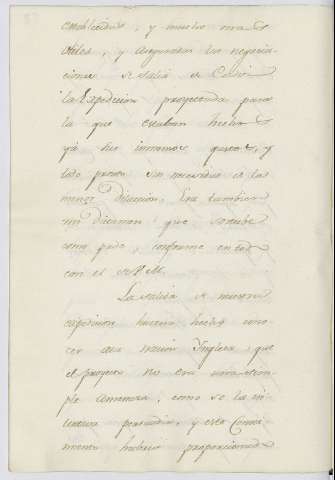 establecidas, y mucho mas
utiles, y aseguradas las negocia-
ciones. Si salia de Cadiz
la Expedicion proyectada para
la que estaban hechos
yà los inmensos gastos, y
todo pronto sin necesidad de la
menor dilacion. Era tambien
mi dictamen que
como pude, conforme en todo
con el de V.M.
La salida de nuestra
expedicion hubiera hecho cono-
cer a la nacion Inglesa, que
el proyecto no era una sim-
ple amenaza, como se la in-
tentara persuadir, y este Conoci-
miento habria proporcionado